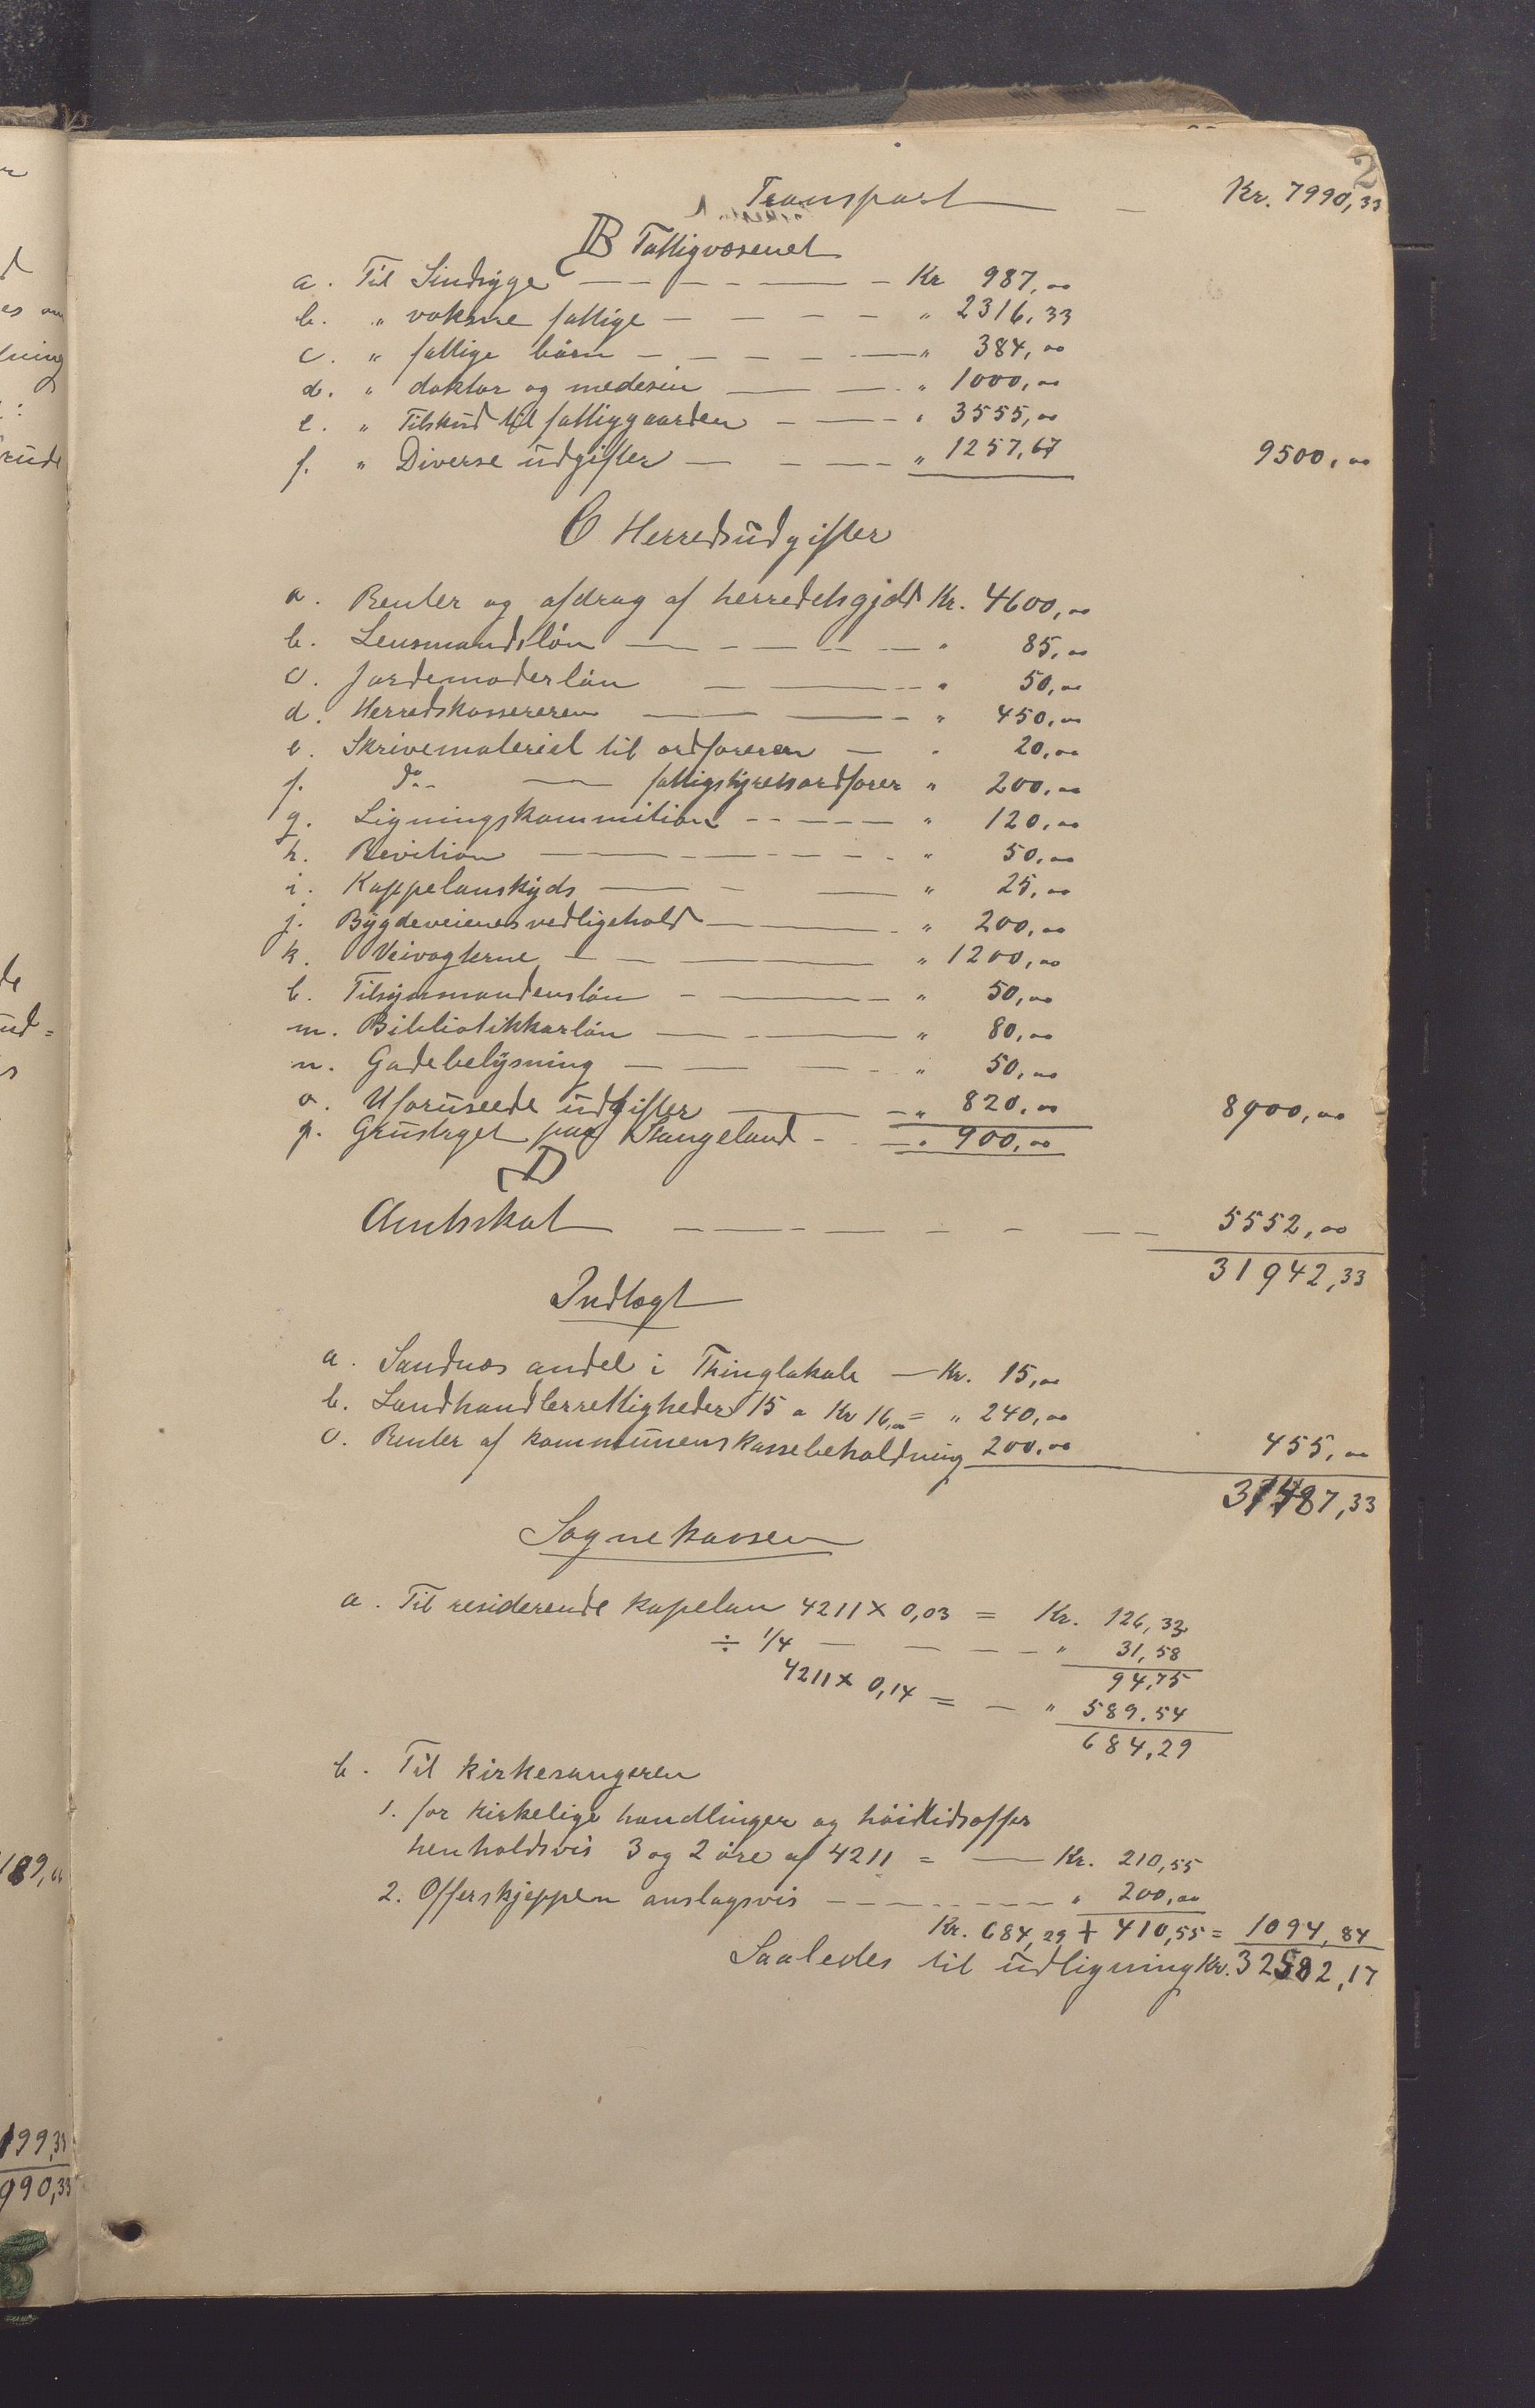 2
Transport — Kr. 7990,33
B Fattigvæsenet
a. Til Sindsyge — Kr 987,00
b. " voksne fattige — " 2316,33
c. " fattige börn — " 384,00
d. " doktor og medesin — " 1000,00
e. " Tilskud til fattiggaarden — " 3555,00
f. " Diverse udgifter — " 1257,67 9500,00
C Herredsudgifter
a. Renter og afdrag af herredetsgjæld Kr. 4600,00
b. Lensmandslön — " 85,00
c. Jordemoderlön — " 50,00
d. Herredskassereren — " 450,00
e. Skrivemateriel til ordföreren — " 20,00
f. do — fattigstyretsordförer " 200,00
g. Ligningskommition — " 120,00
h. Revition — " 50,00
i. Kappelanskyds — " 25,00
j. Bygdeveienes vedligehold — " 200,00
k. Veivogterne — " 1200,00
l. Tilsynsmandenslön — " 50,00
m. Bibliotikkarlön — " 80,00
n. Gadebelysning — " 50,00
o. Uforuseede udgifter — " 820,00 8900,00
p. Grustaget paa Stangeland — " 900,00
D
Amtsskat — 5552,00
31942,33
Indtægt
a. Sandnæs andel i Thinglokale — Kr. 15,00
b. Landhandlerrettigheder 15 a Kr 16,00 = " 240,00
c. Renter af kommunens kassebeholdning 200,00 455,00
31487,33
Sognekassen
a. Til residerende kapelan 4211 × 0,03 = Kr. 126,33
÷ 1/4 — " 31,58
94,75
4211 × 0,14 = — " 589.54
684,29
b. Til kirkesangeren
1. for kirkelige handlinger og höitidsoffer
henholdsvis 3 og 2 öre af 4211 = — Kr. 210,55
2. Offerskjeppen anslagsvis — " 200,00
Kr. 684,29 + 410,55 = 1094,84
Saaledes til udligning Kr. 32582,17
189,00
199,33
990,33